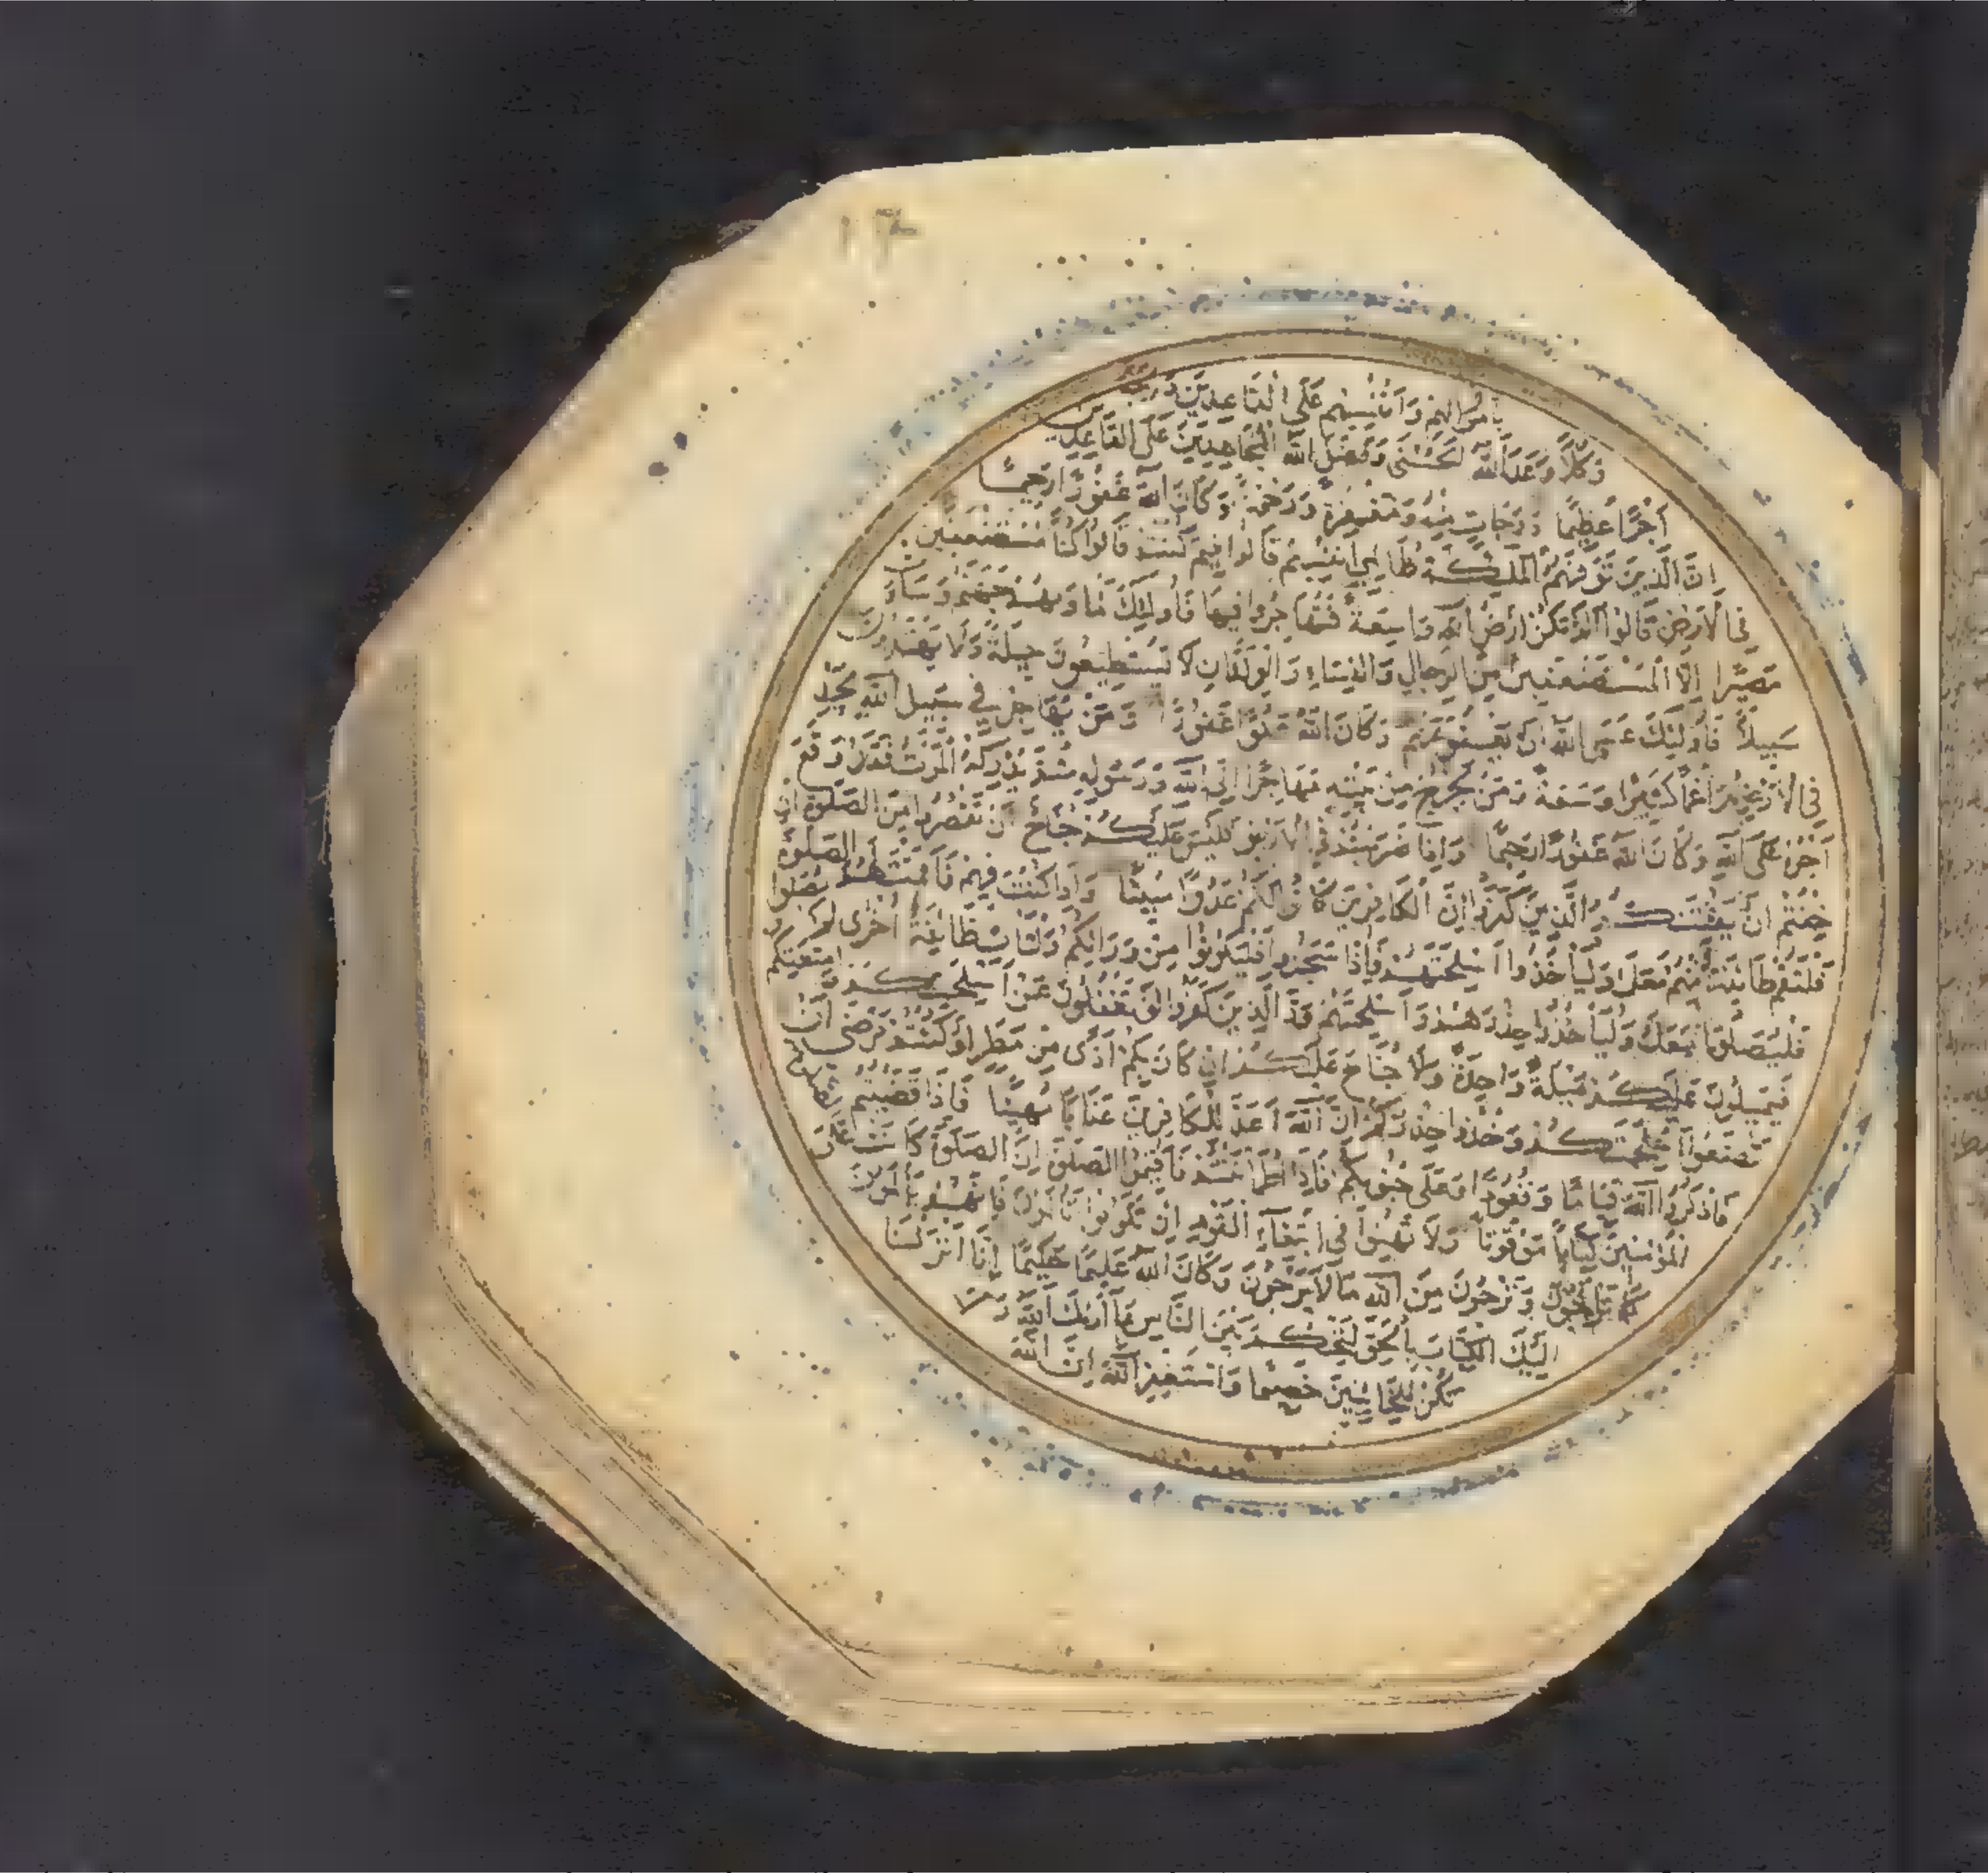 بِأَمْوَالِهِمْ وَأَنْفُسِهِمْ عَلَى الْقَاعِدِينَ دَرَجَةً
وَكُلًّا وَعَدَ اللَّهُ الْحُسْنَى وَفَضَّلَ اللَّهُ الْمُجَاهِدِينَ عَلَى الْقَاعِدِينَ
أَجْرًا عَظِيمًا دَرَجَاتٍ مِنْهُ وَمَغْفِرَةً وَرَحْمَةً وَكَانَ اللَّهُ غَفُورًا رَحِيمًا
إِنَّ الَّذِينَ تَوَفَّيهُمُ الْمَلٰئِكَةُ ظَالِمِي أَنْفُسِهِمْ قَالُوا فِيمَ كُنْتُمْ قَالُوا كُنَّا مُسْتَضْعَفِينَ
فِي الْأَرْضِ قَالُوا أَلَمْ تَكُنْ أَرْضُ اللَّهِ وَاسِعَةً فَتُهَاجِرُوا فِيهَا فَأُولٰئِكَ مَأْوَيهُمْ جَهَنَّمُ وَسَاءَتْ
مَصِيرًا إِلَّا الْمُسْتَضْعَفِينَ مِنَ الرِّجَالِ وَالنِّسَاءِ وَالْوِلْدَانِ لَا يَسْتَطِيعُونَ حِيلَةً وَلَا يَهْتَدُونَ
سَبِيلًا فَأُولٰئِكَ عَسَى اللَّهُ أَنْ يَعْفُوَ عَنْهُمْ وَكَانَ اللَّهُ عَفُوًّا غَفُورًا وَمَنْ يُهَاجِرْ فِي سَبِيلِ اللَّهِ يَجِدْ
فِي الْأَرْضِ مُرَاغَمًا كَثِيرًا وَسَعَةً وَمَنْ يَخْرُجْ مِنْ بَيْتِهِ مُهَاجِرًا إِلَى اللَّهِ وَرَسُولِهِ ثُمَّ يُدْرِكْهُ الْمَوْتُ فَقَدْ وَقَعَ
أَجْرُهُ عَلَى اللَّهِ وَكَانَ اللَّهُ غَفُورًا رَحِيمًا وَإِذَا ضَرَبْتُمْ فِي الْأَرْضِ فَلَيْسَ عَلَيْكُمْ جُنَاحٌ أَنْ تَقْصُرُوا مِنَ الصَّلٰوةِ إِنْ
خِفْتُمْ أَنْ يَفْتِنَكُمُ الَّذِينَ كَفَرُوا إِنَّ الْكَافِرِينَ كَانُوا لَكُمْ عَدُوًّا مُبِينًا وَإِذَا كُنْتَ فِيهِمْ فَأَقَمْتَ لَهُمُ الصَّلٰوةَ
فَلْتَقُمْ طَائِفَةٌ مِنْهُمْ مَعَكَ وَلْيَأْخُذُوا أَسْلِحَتَهُمْ فَإِذَا سَجَدُوا فَلْيَكُونُوا مِنْ وَرَائِكُمْ وَلْتَأْتِ طَائِفَةٌ أُخْرَى لَمْ يُصَلُّوا
فَلْيُصَلُّوا مَعَكَ وَلْيَأْخُذُوا حِذْرَهُمْ وَأَسْلِحَتَهُمْ وَدَّ الَّذِينَ كَفَرُوا لَوْ تَغْفُلُونَ عَنْ أَسْلِحَتِكُمْ وَأَمْتِعَتِكُمْ
فَيَمِيلُونَ عَلَيْكُمْ مَيْلَةً وَاحِدَةً وَلَا جُنَاحَ عَلَيْكُمْ إِنْ كَانَ بِكُمْ أَذًى مِنْ مَطَرٍ أَوْ كُنْتُمْ مَرْضَى أَنْ
تَضَعُوا أَسْلِحَتَكُمْ وَخُذُوا حِذْرَكُمْ إِنَّ اللَّهَ أَعَدَّ لِلْكَافِرِينَ عَذَابًا مُهِينًا فَإِذَا قَضَيْتُمُ الصَّلٰوةَ
فَاذْكُرُوا اللَّهَ قِيَامًا وَقُعُودًا وَعَلَى جُنُوبِكُمْ فَإِذَا اطْمَأْنَنْتُمْ فَأَقِيمُوا الصَّلٰوةَ إِنَّ الصَّلٰوةَ كَانَتْ عَلَى
الْمُؤْمِنِينَ كِتَابًا مَوْقُوتًا وَلَا تَهِنُوا فِي ابْتِغَاءِ الْقَوْمِ إِنْ تَكُونُوا تَأْلَمُونَ فَإِنَّهُمْ يَأْلَمُونَ
كَمَا تَأْلَمُونَ وَتَرْجُونَ مِنَ اللَّهِ مَا لَا يَرْجُونَ وَكَانَ اللَّهُ عَلِيمًا حَكِيمًا إِنَّا أَنْزَلْنَا
إِلَيْكَ الْكِتَابَ بِالْحَقِّ لِتَحْكُمَ بَيْنَ النَّاسِ بِمَا أَرٰيكَ اللَّهُ وَلَا
تَكُنْ لِلْخَائِنِينَ خَصِيمًا وَاسْتَغْفِرِ اللَّهَ إِنَّ اللَّهَ